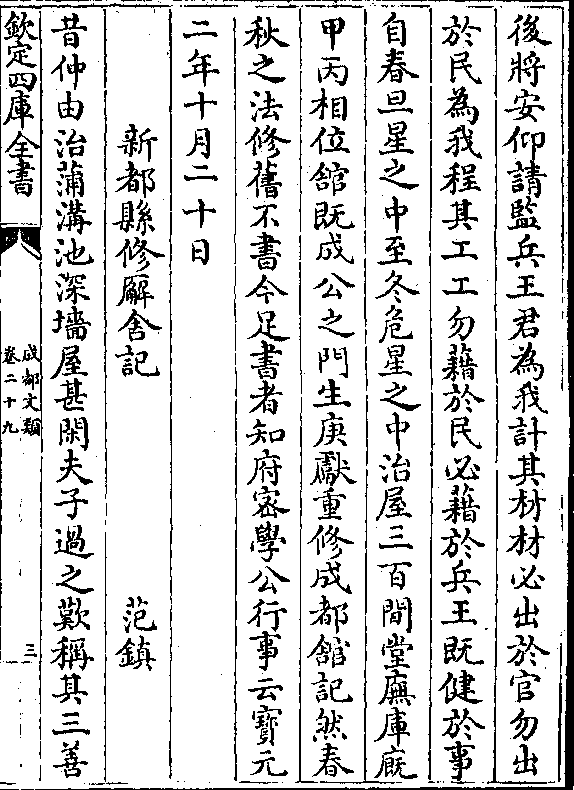 後將安仰請監兵王君為我計其材材必出於官勿出
於民為我程其工工勿藉於民必藉於兵王既健於事
自春旦星之中至冬危星之中治屋三百間堂廡庫廐
甲丙相位舘既成公之門生庚獻重修成都舘記然春
秋之法修舊不書今足書者知府宻學公行事云寶元
二年十月二十日
新都縣修廨舍記
范鎮
昔仲由治蒲溝池深墻屋甚閑夫子過之歎稱其三善
欽定四庫全書
成都文類
卷二十九
三